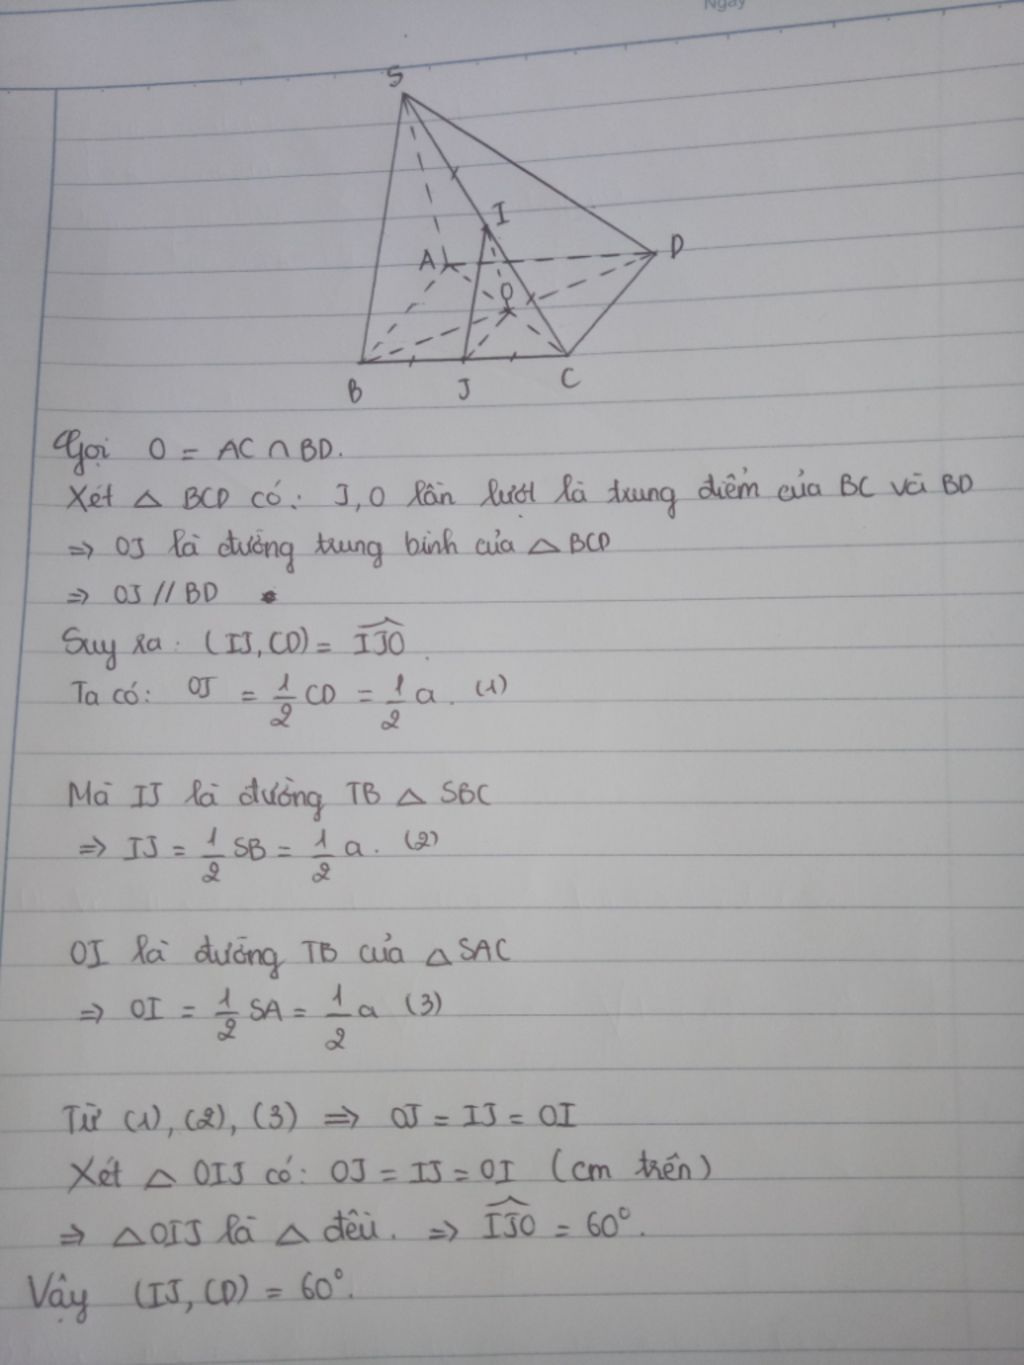 Ngày
S
I
A
D
O
B
J
C
Gọi O = AC ∩ BD.
Xét △ BCD có: J, O lần lượt là trung điểm của BC và BD
=> OJ là đường trung bình của △ BCD
=> OJ // BD
Suy ra: (IJ, CD) = \widehat{IJO}.
Ta có: OJ = 1/2 CD = 1/2 a. (1)
Mà IJ là đường TB △ SBC
=> IJ = 1/2 SB = 1/2 a. (2)
OI là đường TB của △ SAC
=> OI = 1/2 SA = 1/2 a (3)
Từ (1), (2), (3) => OJ = IJ = OI
Xét △ OIJ có: OJ = IJ = OI (cm trên)
=> △OIJ là △ đều. => \widehat{IJO} = 60°.
Vậy (IJ, CD) = 60°.